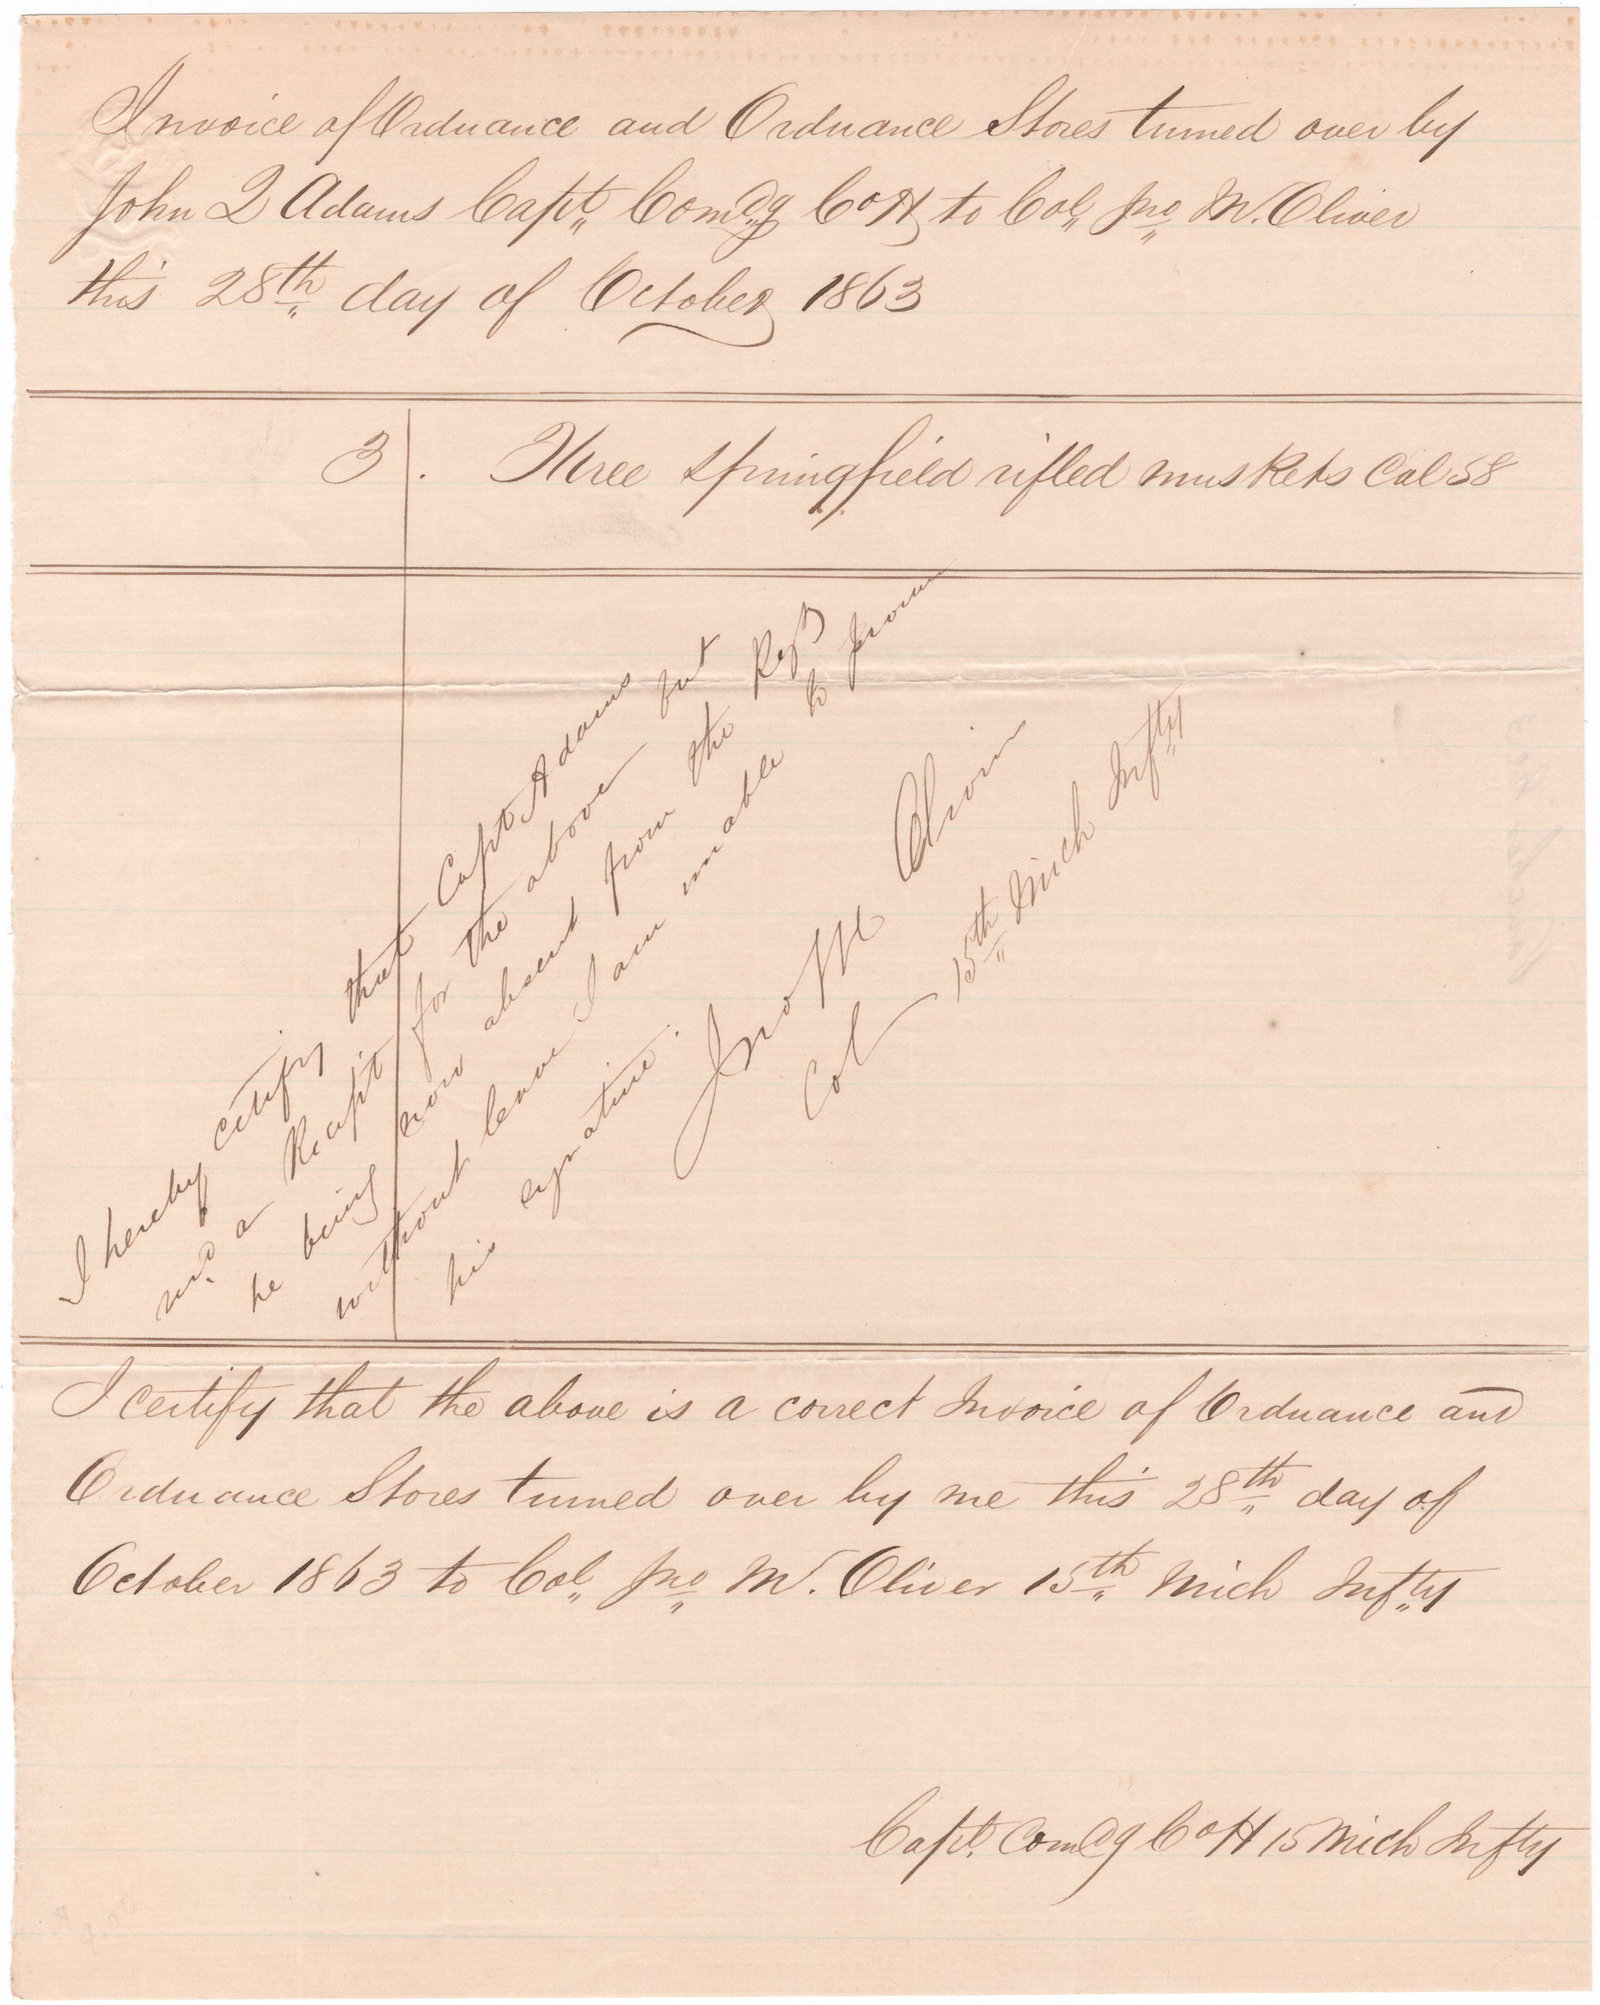 Invoice of Ordnance and Ordnance Stores turned over by
John Q Adams Capt. Comdg Co H to Col. Jno M. Oliver
this 28th day of October 1863
3 . Three Springfield rifled muskets Cal 58
I hereby certify that Capt Adams
a Recipt for the above but
he being now absent from the Regt
without leave I am unable to
his signature.
Jno M Oliver
Col 15th Mich Infty
I certify that the above is a correct Invoice of Ordnance and
Ordnance Stores turned over by me this 28th day of
October 1863 to Col. Jno M. Oliver 15th Mich Infty
Capt. Comdg Co H 15 Mich Infty